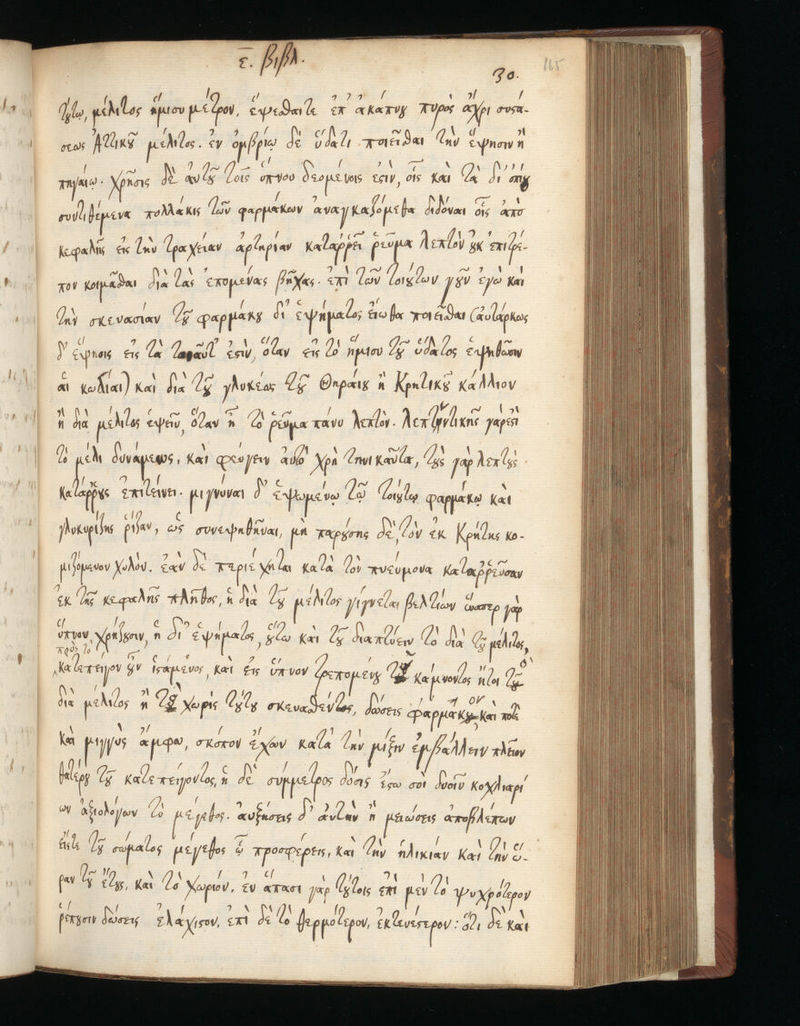 ε. βιβλ.
30.
165
τούτω, μέλιτος ἥμισυ μέτρον, ἕψεσθαί τε ἐπ' ἀκάπνου πυρὸς ἄχρι συστά-
σεως Ἀττικοῦ μέλιτος. ἐν ὀμβρίῳ δὲ ὕδατι ποιεῖσθαι τὴν ἕψησιν ἢ
πηγαίῳ. χρῆσις δὲ αὐτοῦ τοῖς ὕπνου δεομένοις ἐστὶν, οἷς καὶ τὰ δι' ὀπίου
συντιθέμενα πολλάκις τῶν φαρμάκων ἀναγκαζόμεθα διδόναι οἷς ἀπὸ
κεφαλῆς εἰς τὴν τραχείαν ἀρτηρίαν καταῤῥεῖ ῥεῦμα λεπτὸν οὐκ ἐπιτρέ-
πον κοιμᾶσθαι διὰ τὰς ἑπομένας βῆχας. ἐπὶ τῶν τοιούτων γοῦν ἐγὼ καὶ
τὴν σκευασίαν τοῦ φαρμάκου δι' ἑψήματος εἴωθα ποιεῖσθαι (αὐτάρκως
δ' ἕψησις εἰς τὰ τοιαῦτ' ἐστὶν, ὅταν εἰς τὸ ἥμισυ τοῦ ὕδατος ἑψηθῶσιν
αἱ κωδίαι) καὶ διὰ τοῦ γλυκέως τοῦ Θηραίου ἢ Κρητικοῦ κάλλιον
ἢ διὰ μέλιτος ἑψεῖν, ὅταν ᾖ τὸ ῥεῦμα πάνυ λεπτὸν. λεπτυντικῆς γὰρ ἐστὶ
τὸ μέλι δυνάμεως, καὶ φεύγειν αὐτὸ χρὴ τηνικαῦτα, τοὺς γὰρ λεπτοὺς
κατάῤῥους ἐπιτείνει. μιγνύναι δ' ἑψωμένῳ τῷ τοιούτῳ φαρμάκῳ καὶ
γλυκυρίζης ῥίζαν, ὡς συνεψηθῆναι, μὴ παρούσης δὲ, τὸν ἐκ Κρήτης κο-
μιζόμενον χυλὸν. ἐὰν δὲ περιέχηται κατὰ τὸν πνεύμονα καταῤῥεῦσαν
ἐκ τῆς κεφαλῆς πλῆθος, ἡ διὰ τοῦ μέλιτος γίγνεται βελτίων ὥσπερ γὰρ
ὕπνου χρήζουσιν, ἡ δι' ἑψήματος, οὕτω καὶ τοῦ διαπτύειν τὸ διὰ τοῦ μέλιτος,
πρὸς τὸ
κατεπεῖγον οὖν ἱστάμενος, καὶ εἰς ὕπνον τρεπομένου τοῦ κάμνοντος ἤτοι τὸ
διὰ μέλιτος ἢ τὸ χωρὶς τούτου σκευασθέντος, δώσεις φάρμακον, καὶ ποτὲ
καὶ μιγνὺς ἄμφω, σκόπον ἔχων κατὰ τὴν μίξιν ἐμβάλλειν πλεῖον
θατέρου τοῦ κατεπείγοντος, ἡ δὲ σύμμετρος δόσις ἔστω σοὶ δυοῖν κοχλιαρί
ων ἀξιολόγων τὸ μέγεθος. αὐξήσεις δ' αὐτὴν ἢ μειώσεις ἀποβλέπων
εἴς τε τοῦ σώματος μέγεθος ᾧ προσφέρεις, καὶ τὴν ἡλικίαν καὶ τὴν ὥ-
ραν τοῦ ἔτους, καὶ τὸ χωρίον. ἐν ἅπασι γὰρ τούτοις ἐπὶ μὲν τὸ ψυχρότερον
ῥέπουσιν δώσεις ἐλάχιστον, ἐπὶ δὲ τὸ θερμότερον, ἐκτενέστερον: ὅτι δὲ καὶ